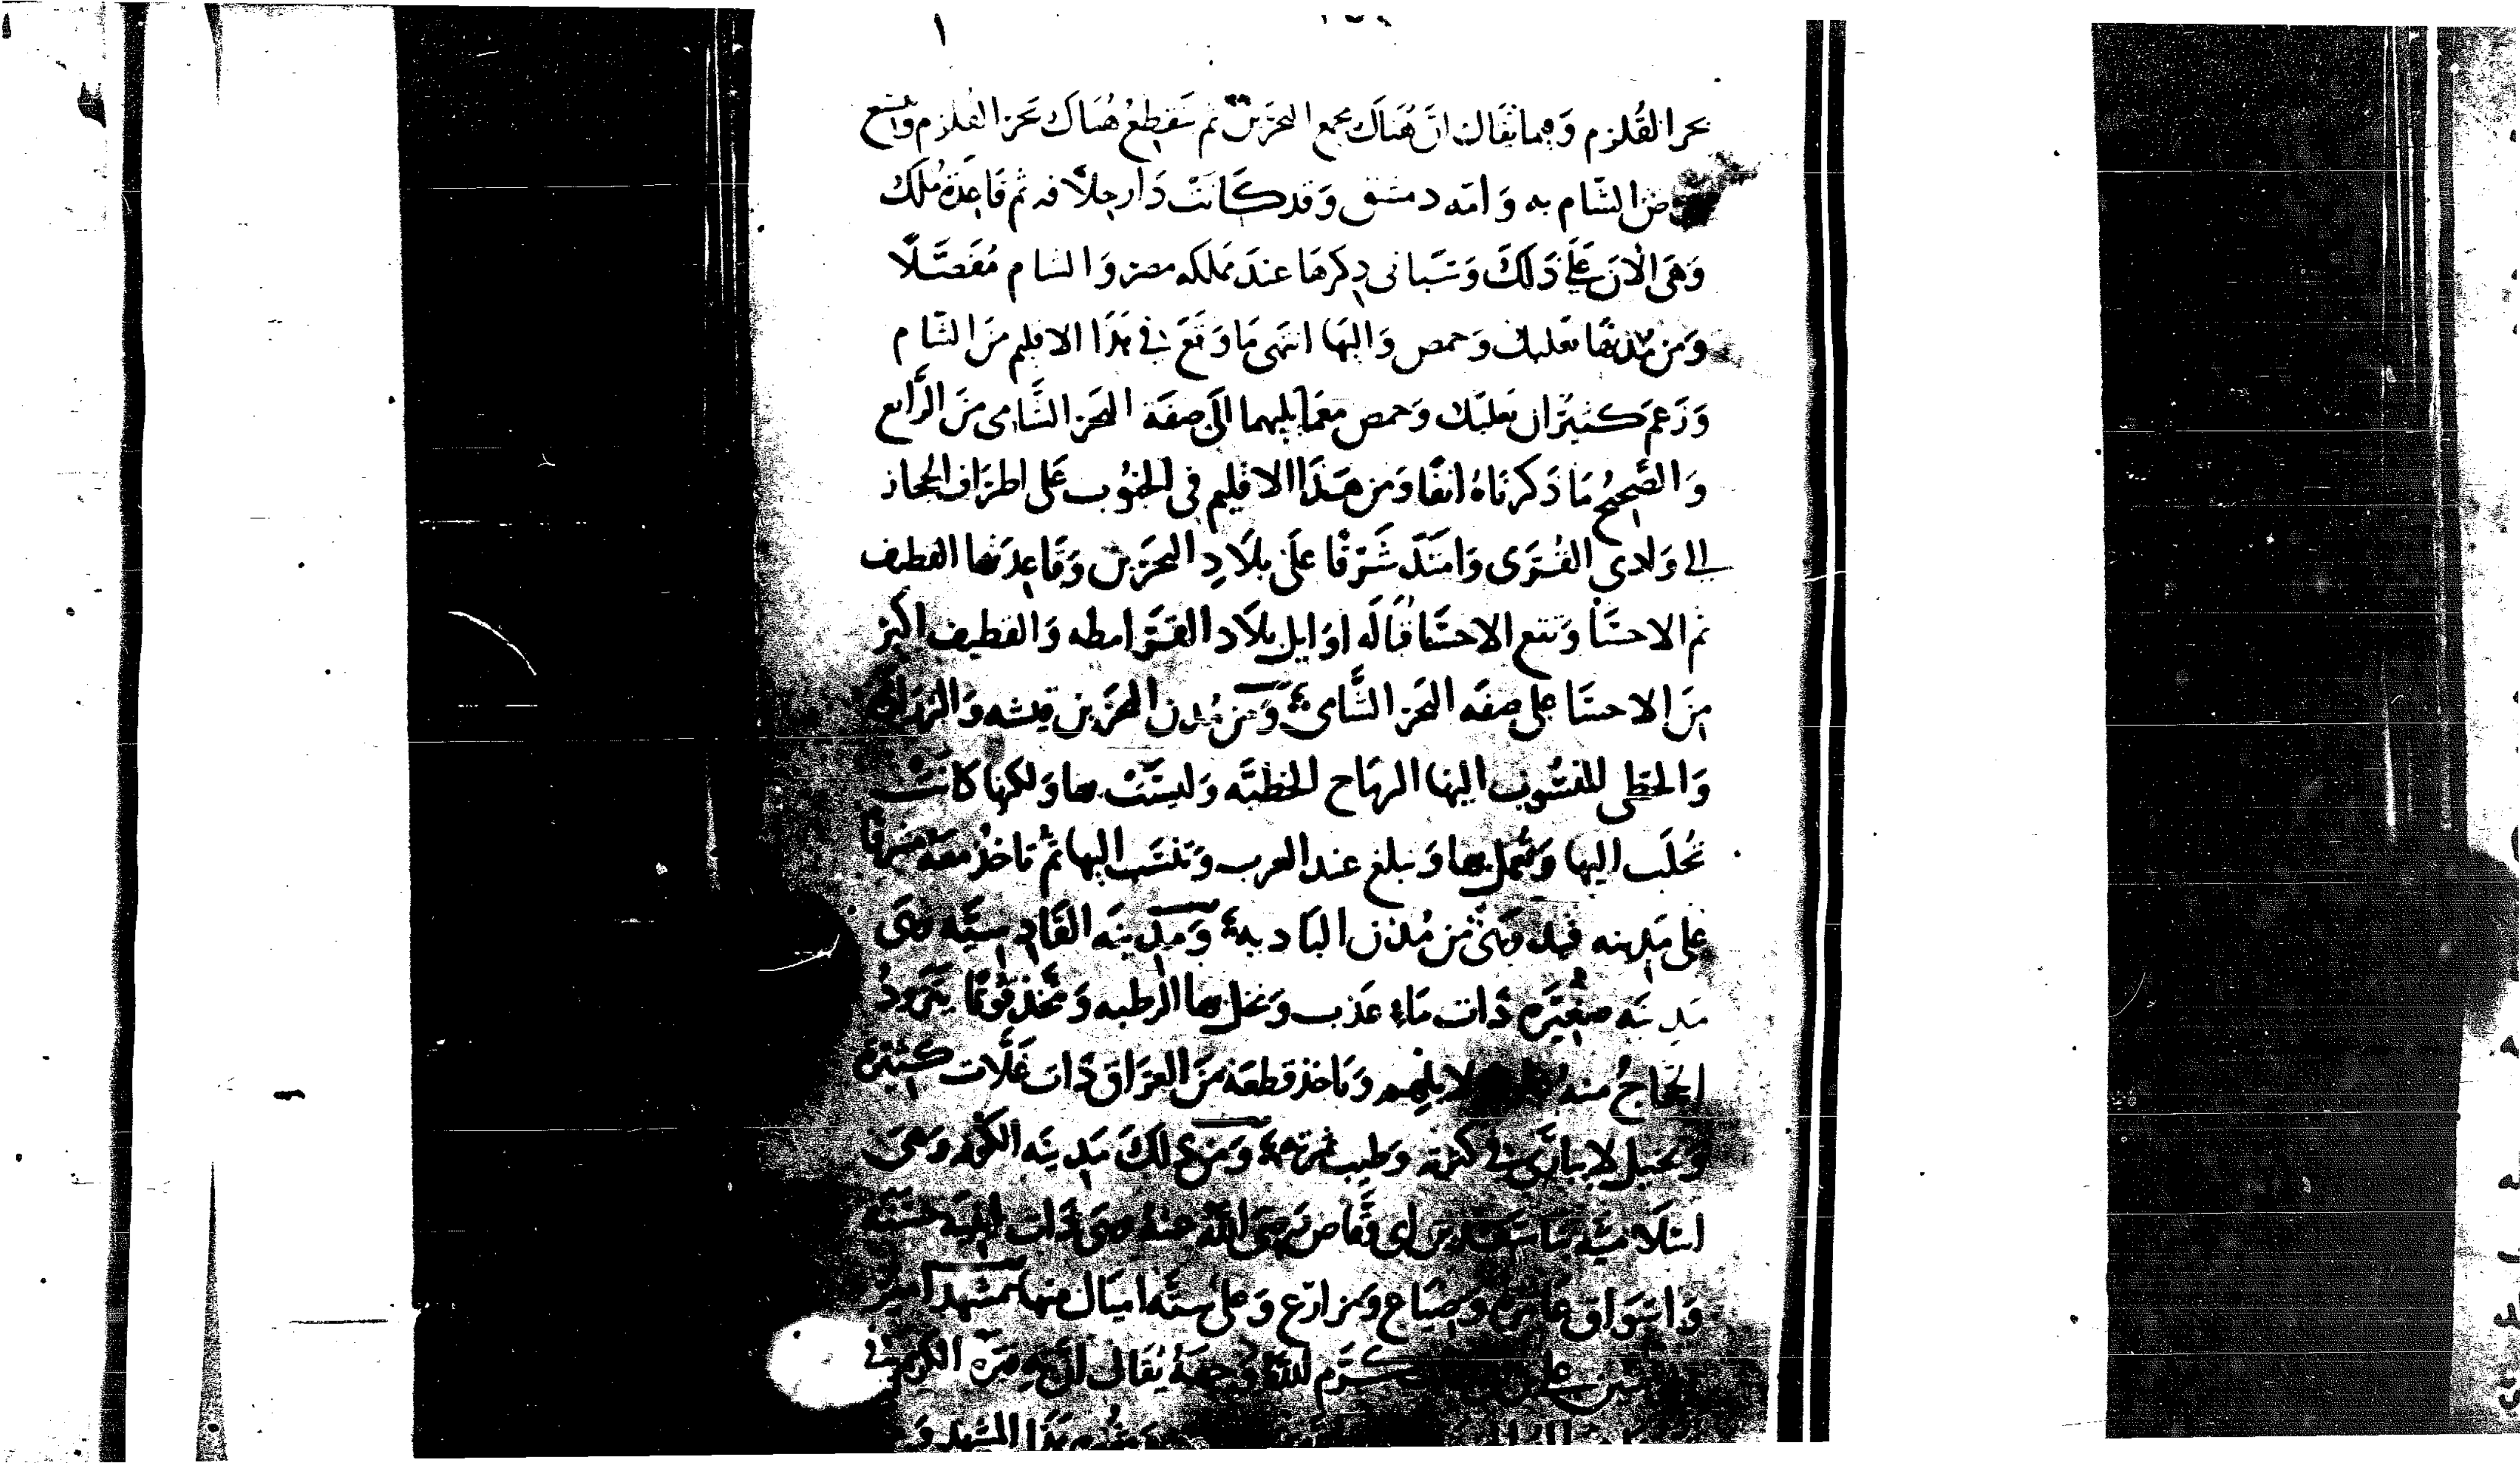 بحر القلزم وفيما يقال ان هناك مجمع البحرين ثم ينقطع هناك بحر القلزم وتتسع
ارض الشام به وامه دمشق وقد كانت دار خلافه ثم قاعدة ملك
وهي الان علي ذلك وسياتي ذكرها عند مملكه مصر والشام مفصلا
ومن مدنها بعلبك وحمص واليها انتهى ما وقع في هذا الاقليم من الشام
وزعم كثير ان بعلبك وحمص معما يليهما الى ضفة البحر الشامي من الرابع
والصحيح ما ذكرناه انفا ومن هذا الاقليم في الجنوب على اطراف الحجاز
الي وادي القرى وامتد شرقا على بلاد البحرين وقاعدتها القطيف
ثم الاحسا وتتبع الاحسا قباله اوايل بلاد القرامطه والقطيف اكبر
من الاحسا على ضفه البحر ومن مدن البحرين والزاره
والخط المنسوب اليها الرماح الخطيه وليست بها ولكنها كانت
تجلب اليها وتعمل بها وتبلغ عند العرب وتنسب اليها ثم تاخذ معه مشرقا
على مدينه فيد وهي من مدن الباديه ومدينه القادسيه وهي
مدينه صغيره ذات ماء عذب ونخل بها الرطبه وتتخذ قوتا يتزود
الحاج منه وتاخذ قطعة من العراق ذات غلات كثيرة
ونخيل لا يبارى في كثرته وطيب ثمرته ومن ذلك مدينه الكوفه وهي
اسلاميه بناها سعد بن ابي وقاص رضي الله عنه وهي ذات ابنيه حسنه
واسواق عامرة وضياع ومزارع وعلى سته اميال منها مشهد امير
المومنين علي كرم الله وجهه يقال ان قبره الكريم في
هذا المشهد